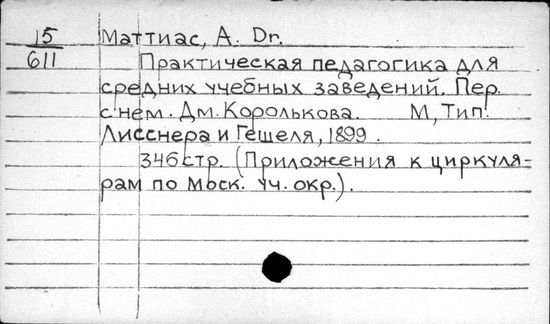 15 Маттиас, А. Dr.
611 Практическая педагогика для
средних учебных заведений. Пер.
с нем. Дм. Королькова. М, Тип.
Лисснера и Гешеля, 1899.
346 стр. (Приложения к циркуля-
рам по Моск. уч. окр.).